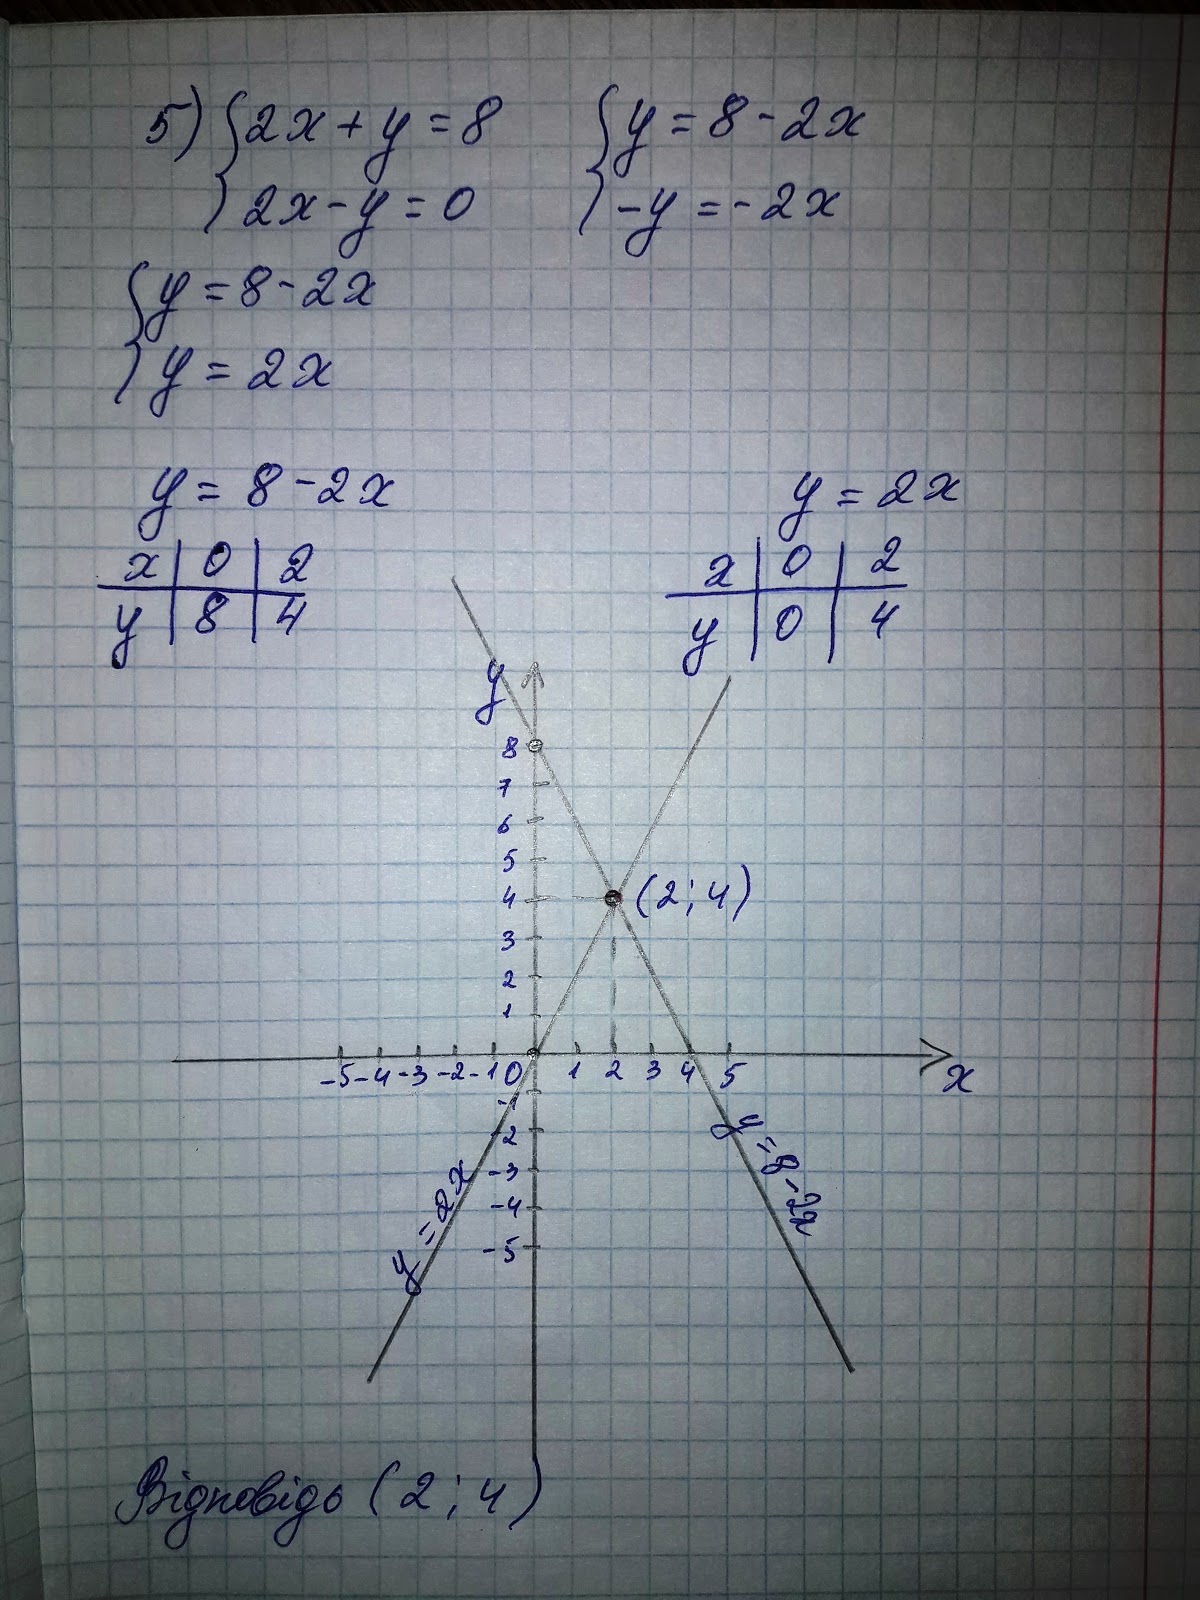 5) { 2x + y = 8 { y = 8 - 2x
2x - y = 0 - y = - 2x
{ y = 8 - 2x
y = 2x
y = 8 - 2x y = 2x
x | 0 | 2 x | 0 | 2
y | 8 | 4 y | 0 | 4
y
8
7
6
5
4 (2; 4)
3
2
1
-5 -4 -3 -2 -1 0 1 2 3 4 5 x
-1
-2
-3
-4
-5
y = 2x
y = 8 - 2x
Відповідь (2; 4)